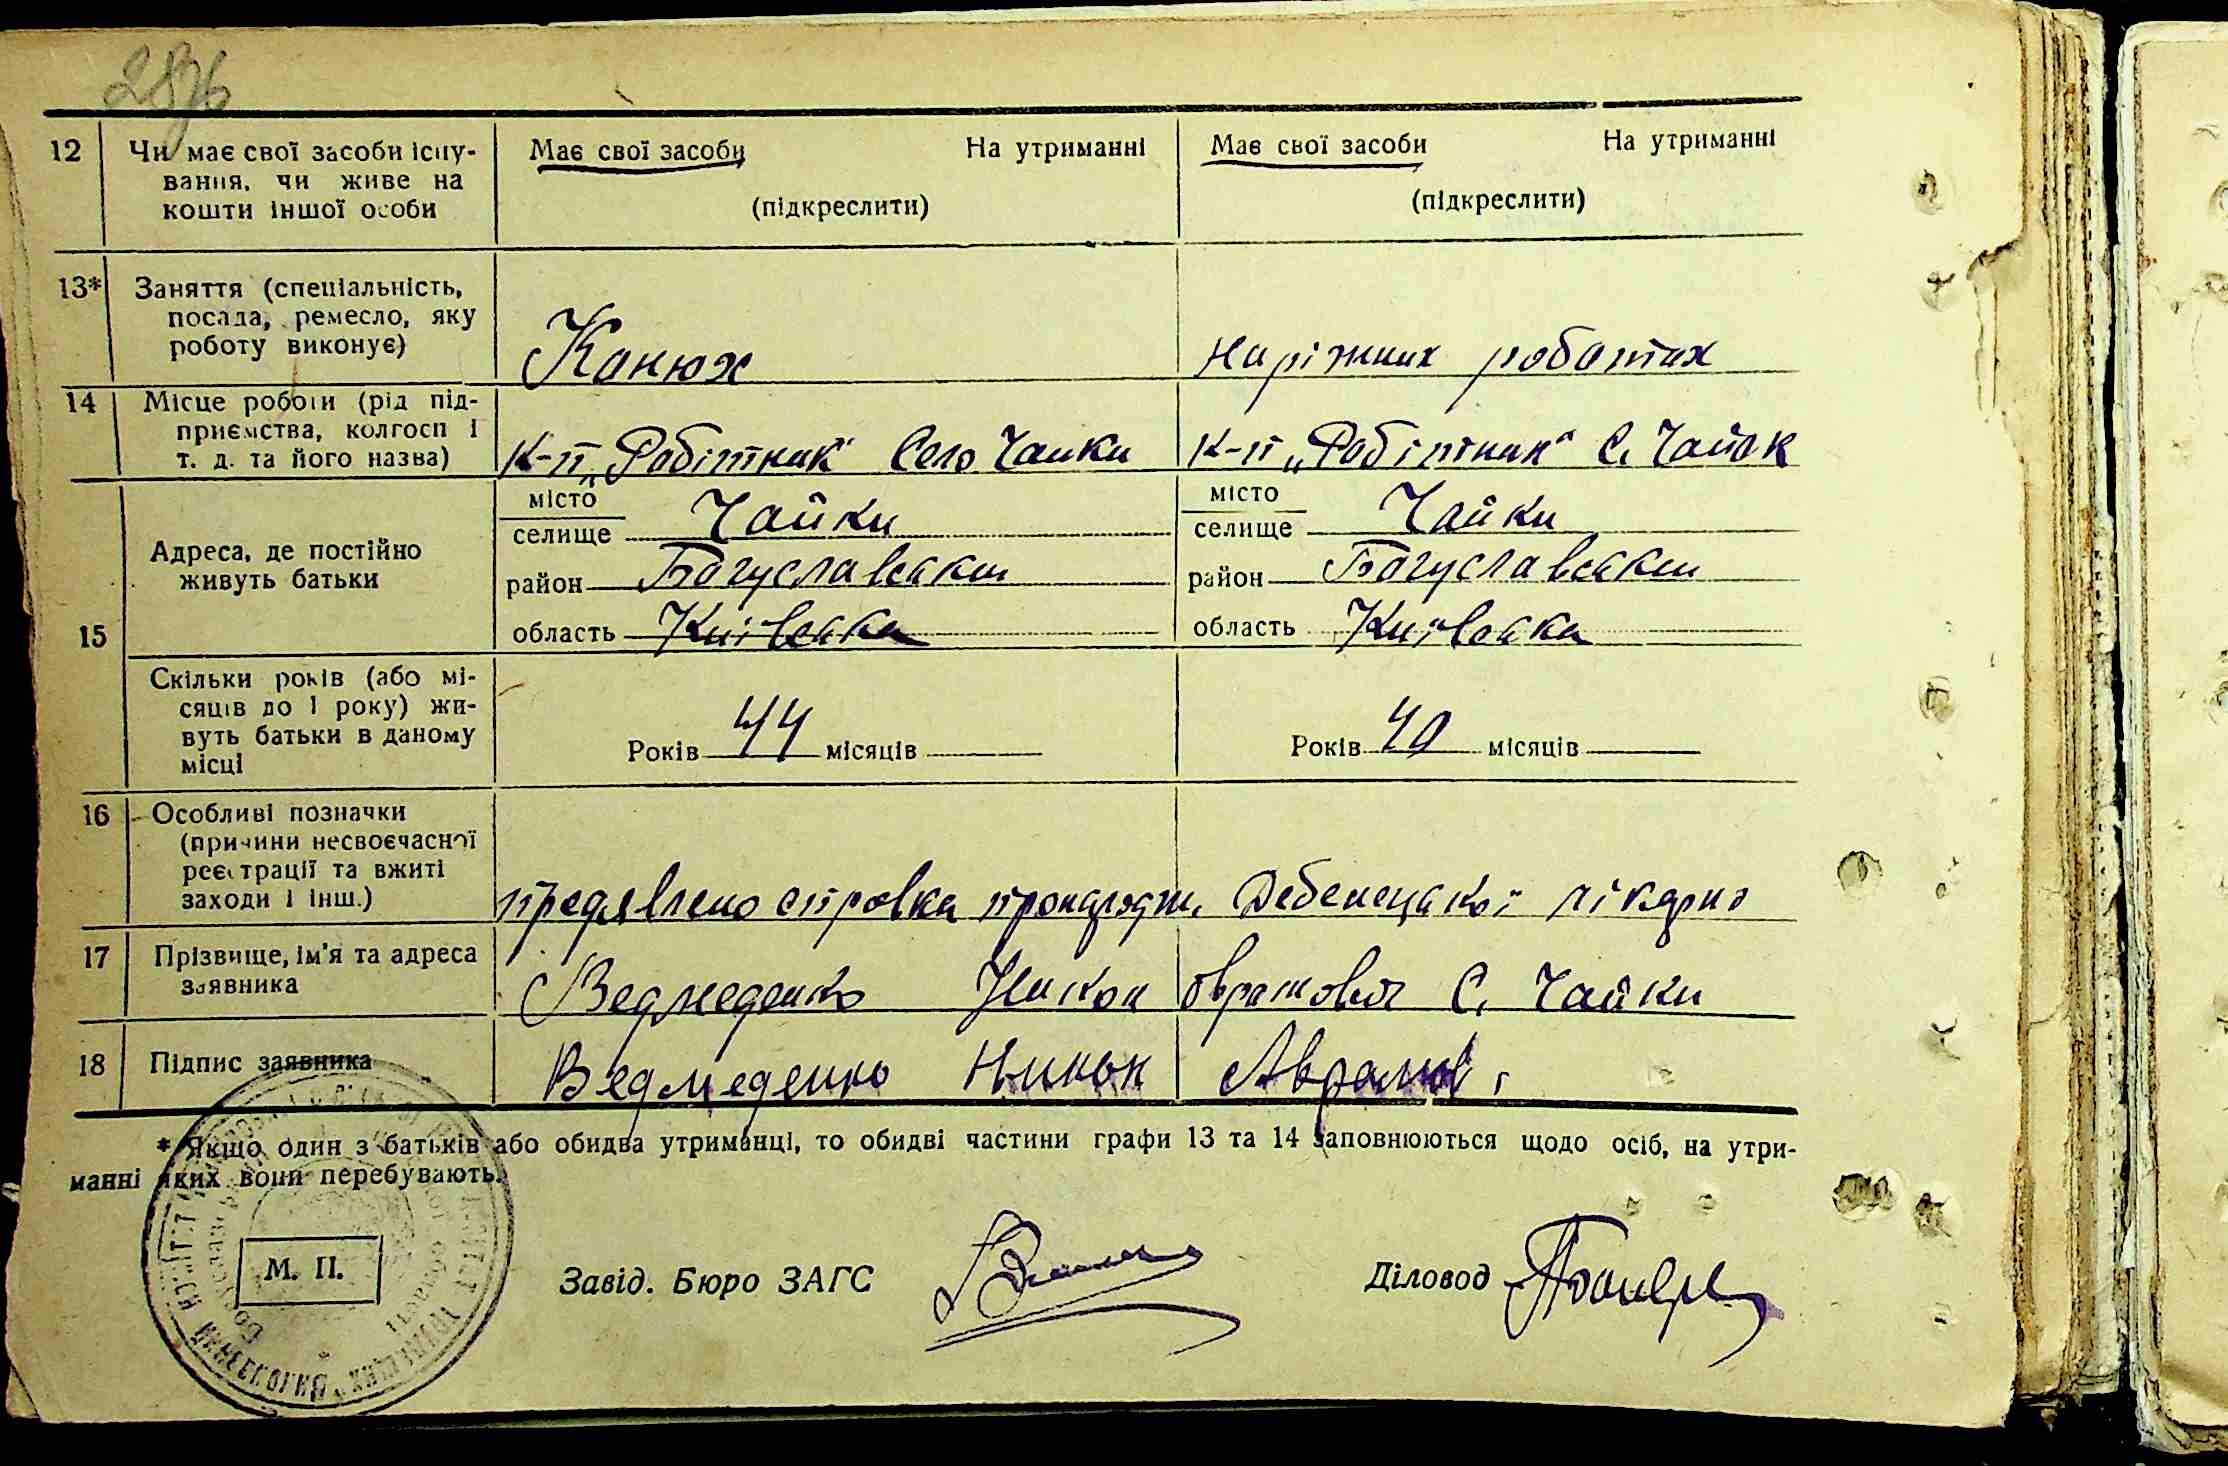 12 Чи має свої засоби існу- Має свої засоби На утриманні Має свої засоби На утриманні
вання, чи живе на
кошти іншої особи (підкреслити) (підкреслити)
13* Заняття (спеціальність,
посада, ремесло, яку
роботу виконує) Конюх на ріжних роботах
14 Місце роботи (рід під-
приємства, колгосп і
т. д. та його назва) К-п „Робітник" Село Чайки К-п „Робітник" С. Чайок
місто місто
селище Чайки селище Чайки
Адреса, де постійно
живуть батьки район Богуславський район Богуславський
15 область Київська область Київська
Скільки років (або мі-
сяців до 1 року) жи-
вуть батьки в даному Років 44 місяців Років 40 місяців
місці
16 Особливі позначки
(причини несвоєчасної
реєстрації та вжиті
заходи і інш.) предявлено справка Дебенецької лікарні
17 Прізвище, ім'я та адреса
заявника Ведмеденко Никон Оврамович С. Чайки
18 Підпис заявника Ведмеденко Никон Аврамов
* Якщо один з батьків або обидва утриманці, то обидві частини графи 13 та 14 заповнюються щодо осіб, на утри-
манні яких вони перебувають.
М. П. Завід. Бюро ЗАГС Діловод